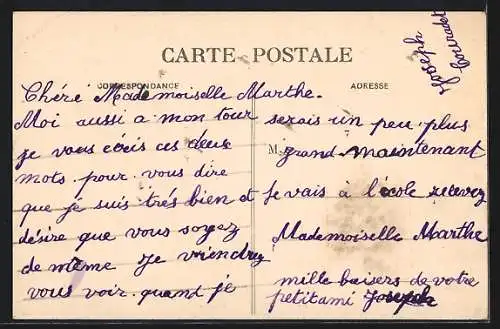 Joseph
CARTE POSTALE
CORRESPONDANCE
ADRESSE
Chéré Mademoiselle Marthe.
Moi aussi a mon tour
je vous écris ces deux
mots pour vous dire
que je suis trés bien et
désire que vous soyez
de même je viendrez
vous voir quand je
serais un peu plus
M
grand maintenant
Je vais à l'école recevez
Mademoiselle Marthe
mille baisers de votre
petit ami Joseph